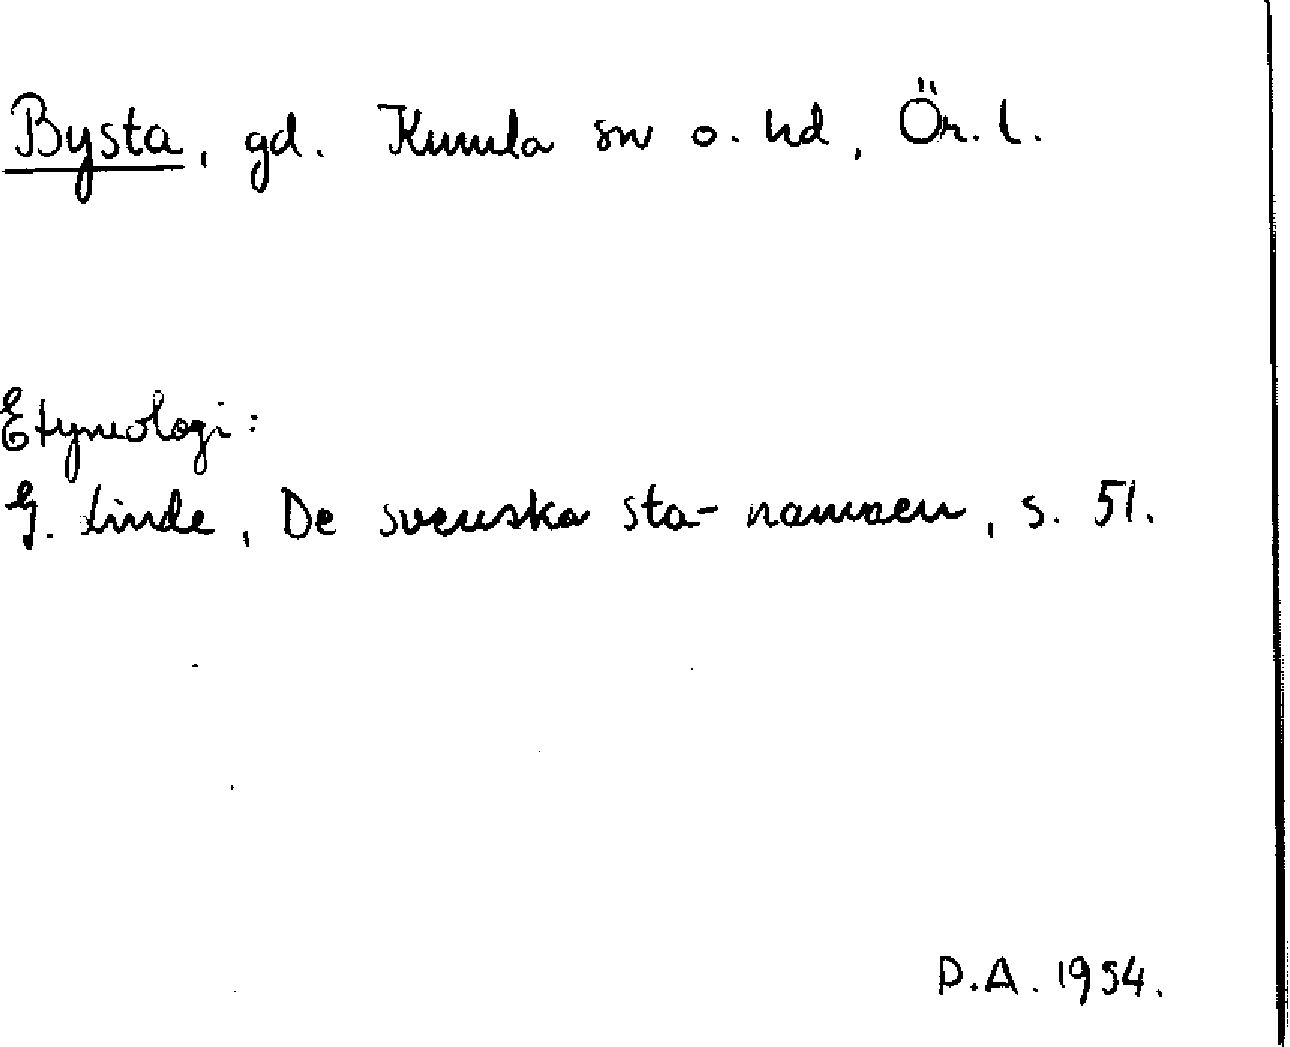 Bysta, gd. Kumla sn o. hd, Ör. l.
Etymologi:
G. Linde, De svenska sta-namnen, s. 51.
P.A. 1954.